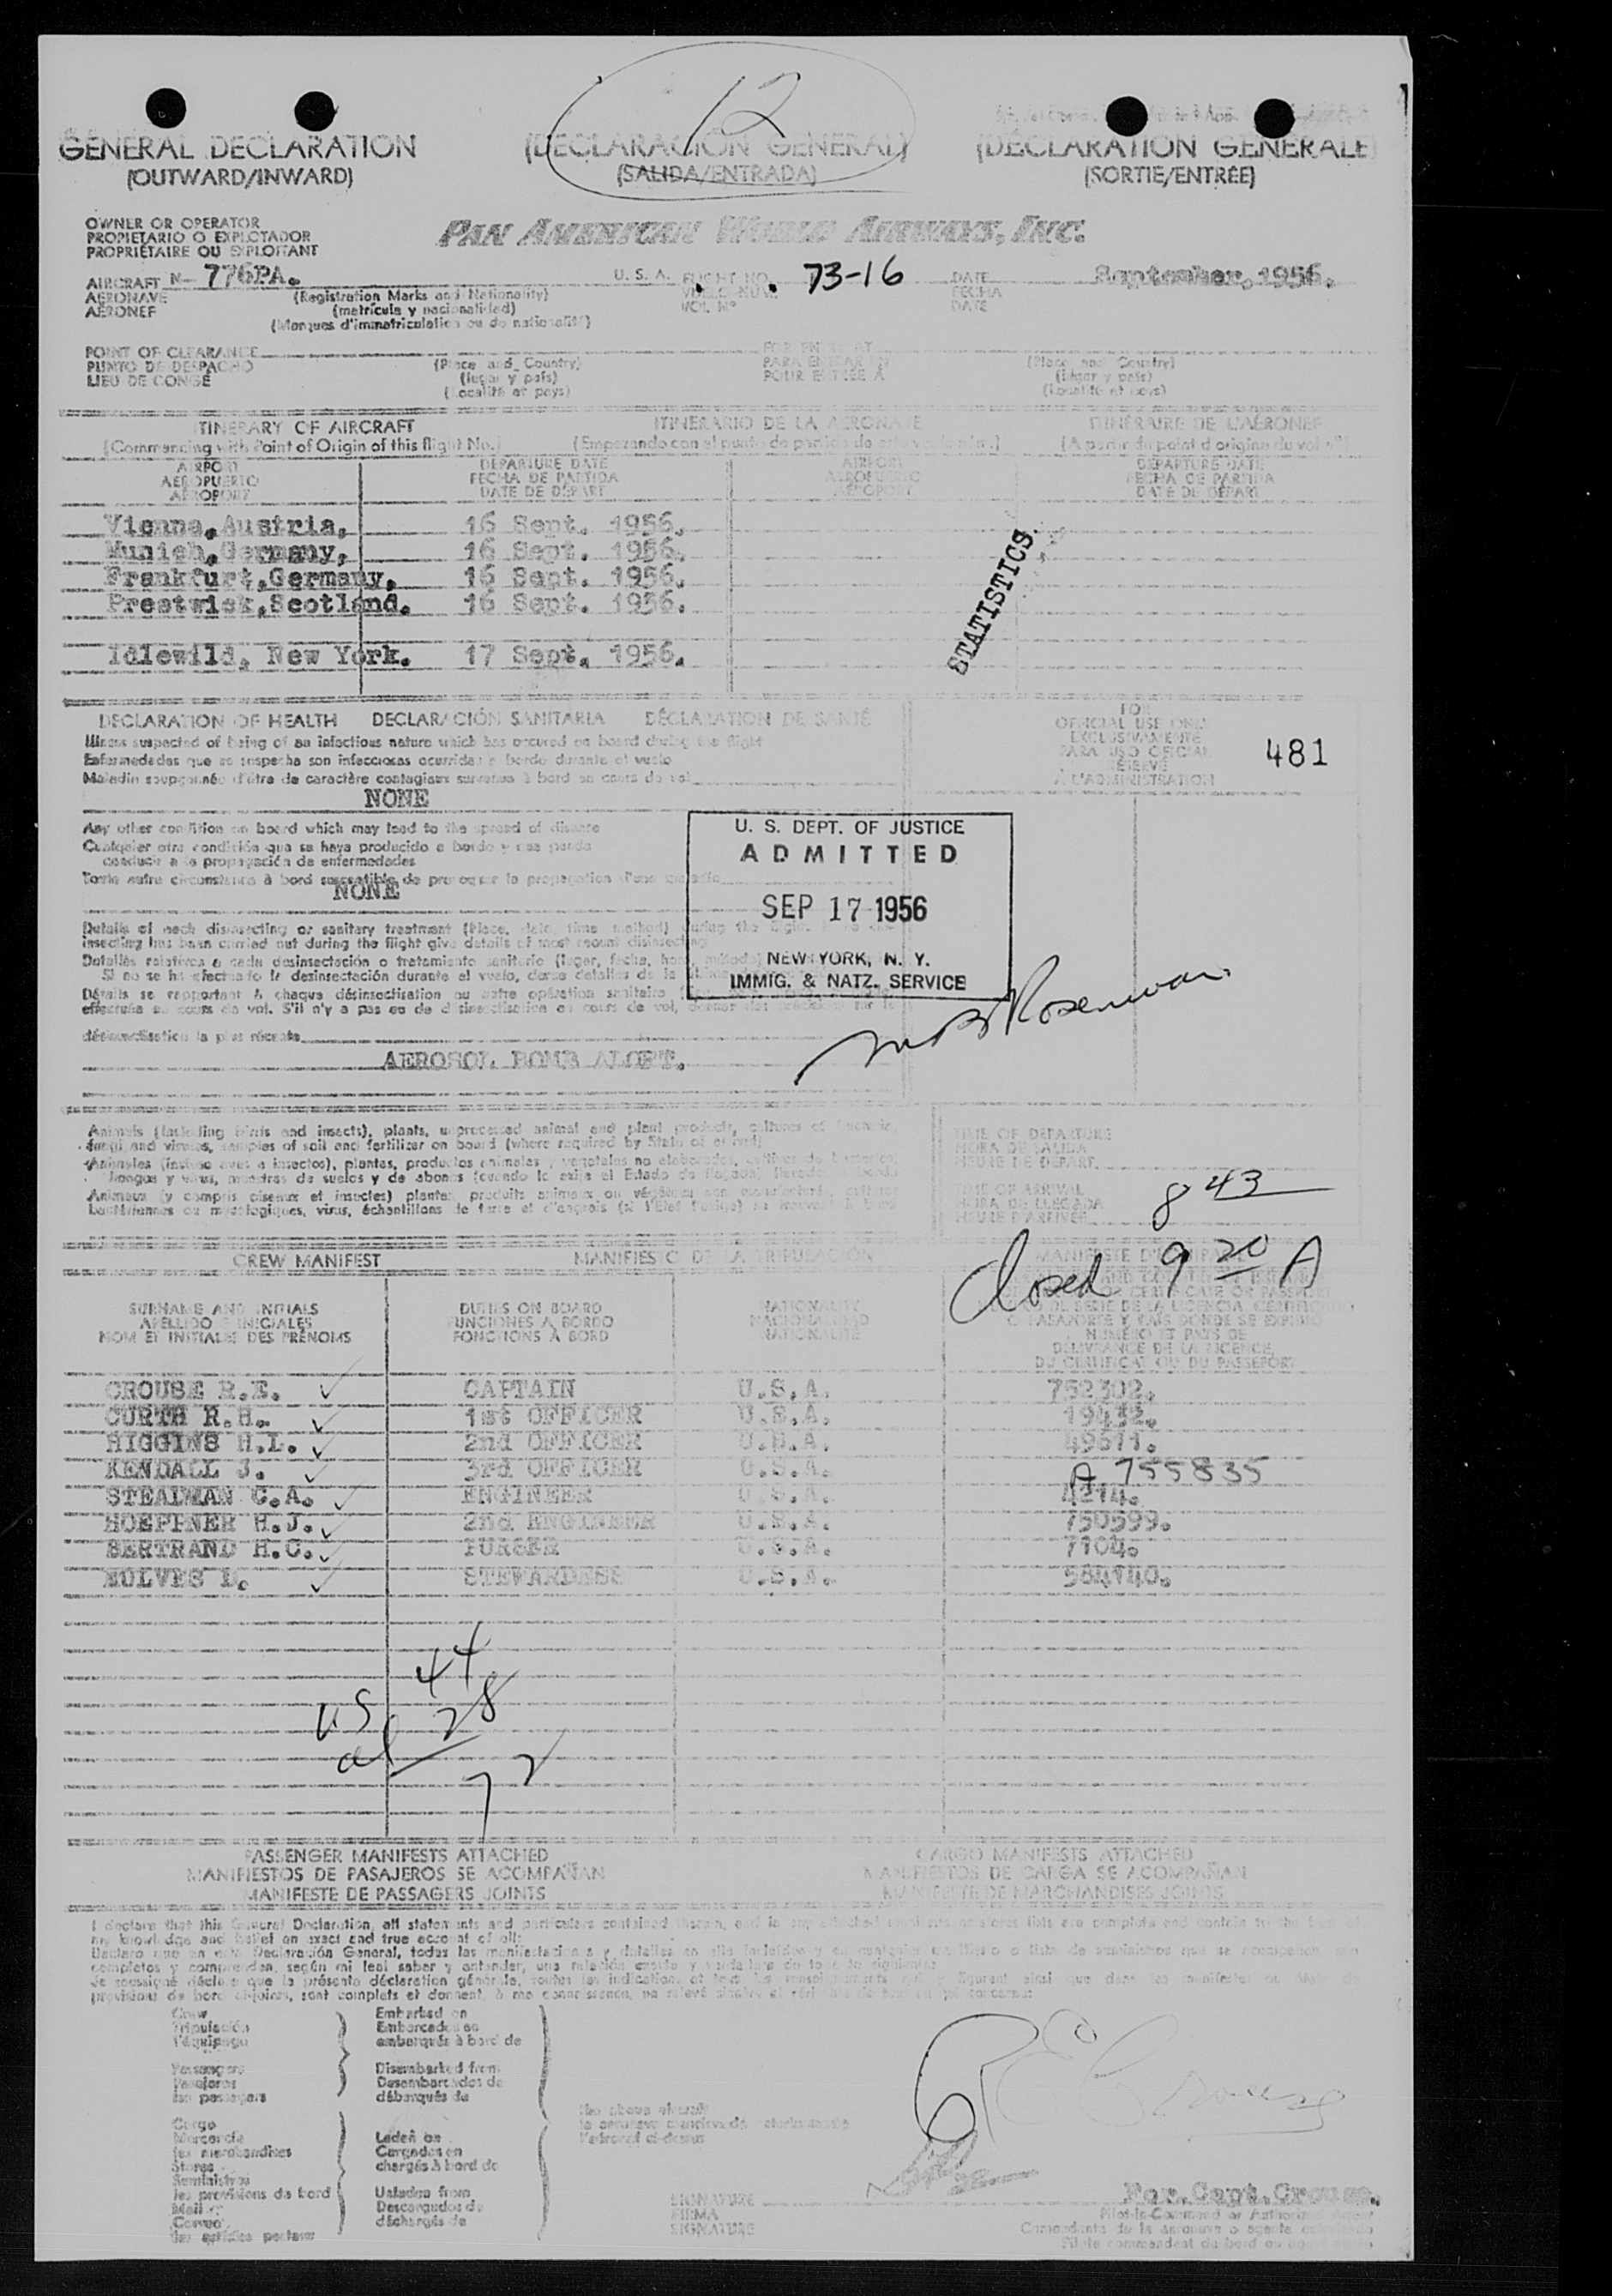 12
GENERAL DECLARATION (DECLARACIÓN GENERAL) (DÉCLARATION GÉNÉRALE)
(OUTWARD/INWARD) (SALIDA/ENTRADA) (SORTIE/ENTRÉE)
OWNER OR OPERATOR
PROPIETARIO O EXPLOTADOR
PROPRIÉTAIRE OU EXPLOITANT
PAN AMERICAN WORLD AIRWAYS, INC.
AIRCRAFT N- 776PA. U. S. A. FLIGHT NO. 73-16 DATE September, 1956.
AERONAVE (Registration Marks and Nationality) FECHA
AÉRONEF (matrícula y nacionalidad) VOL Nº DATE
(Marques d'immatriculation ou de nationalité)
POINT OF CLEARANCE FOR ENTRY AT
PUNTO DE DESPACHO (Place and Country) PARA ENTRAR EN (Place and Country)
LIEU DE CONGÉ (lugar y país) POUR ENTRÉE A (lugar y país)
(Localité et pays) (Localité et pays)
ITINERARY OF AIRCRAFT ITINERARIO DE LA AERONAVE ITINÉRAIRE DE L'AÉRONEF
(Commencing with Point of Origin of this flight No.) (Empezando con el punto de partida de
AIRPORT DEPARTURE DATE AIRPORT DEPARTURE DATE
AEROPUERTO FECHA DE PARTIDA AEROPUERTO FECHA DE PARTIDA
AÉROPORT DATE DE DÉPART AÉROPORT DATE DE DÉPART
Vienna, Austria, 16 Sept. 1956.
Munich, Germany, 16 Sept. 1956.
Frankfurt, Germany, 16 Sept. 1956.
Prestwick, Scotland. 16 Sept. 1956.
Idlewild, New York. 17 Sept. 1956.
STATISTICS.
DECLARATION OF HEALTH DECLARACIÓN SANITARIA DÉCLARATION DE SANTÉ
FOR
OFFICIAL USE ONLY
EXCLUSIVAMENTE
PARA USO OFICIAL
RÉSERVÉ
A L'ADMINISTRATION
481
Illness suspected of being of an infectious nature which has occured on board during the flight
Enfermedades que se sospecha son infecciosas ocurridas a bordo durante el vuelo
Maladie soupçonnée d'être de caractère contagieux survenue à bord en cours de vol
NONE
Any other condition on board which may lead to the spread of disease
Cualquier otra condición que se haya producido a bordo y que pueda
conducir a la propagación de enfermedades
Toute autre circonstance à bord susceptible de provoquer la propagation d'une maladie
NONE
U. S. DEPT. OF JUSTICE
ADMITTED
SEP 17 1956
NEW YORK, N. Y.
IMMIG. & NATZ. SERVICE
Details of each disinsecting or sanitary treatment (Place, date, time, method) during the flight.
insecting has been carried out during the flight give details of most recent disinsecting
Detalles relativos a cada desinsectación o tratamiento sanitario (lugar, fecha, hora, método)
Si no se ha efectuado la desinsectación durante el vuelo, dense detalles de la
Détails se rapportant à chaque désinsectisation ou autre opération sanitaire
effectuée en cours de vol. S'il n'y a pas eu de désinsectisation en cours de vol,
désinsectisation la plus récente
AEROSOL BOMB ALOFT.
Animals (including birds and insects), plants, unprocessed animal and plant products, cultures of bacteria,
fungi and viruses, samples of soil and fertilizer on board (where required by State of arrival)
Animales (incluso aves e insectos), plantas, productos animales y vegetales no elaborados,
hongos y virus, muestras de suelos y de abonos (cuando lo exija el Estado de
Animaux (y compris oiseaux et insectes) plantes, produits animaux ou végétaux
virus, échantillons de terre et d'engrais
TIME OF DEPARTURE
HORA DE SALIDA
HEURE DE DÉPART
TIME OF ARRIVAL
HORA DE LLEGADA
HEURE D'ARRIVÉE
8 43
Closed 9 20 A
CREW MANIFEST
SURNAME AND INITIALS DUTIES ON BOARD NATIONALITY
APELLIDO E INICIALES FUNCIONES A BORDO NACIONALIDAD
NOM ET INITIALES DES PRÉNOMS FONCTIONS À BORD NATIONALITÉ
NUMÉRO ET PAYS DE
DÉLIVRANCE DE LA LICENCE,
DU CERTIFICAT OU DU PASSEPORT
CROUSE R.E. CAPTAIN U.S.A. 752302.
CURTH R.H. 1st OFFICER U.S.A. 19432.
HIGGINS H.L. 2nd OFFICER U.S.A. 49671.
KENDALL J. 3rd OFFICER U.S.A. A 755835
STEADMAN C.A. ENGINEER U.S.A. 4214.
HOEPPNER H.J. 2nd ENGINEER U.S.A. 750599.
BERTRAND H.C. PURSER U.S.A. 7104.
STEWARDESS U.S.A. 584140.
44
US 28
al
72
PASSENGER MANIFESTS ATTACHED CARGO MANIFESTS ATTACHED
MANIFIESTOS DE PASAJEROS SE ACOMPAÑAN MANIFIESTOS DE CARGA SE ACOMPAÑAN
MANIFESTE DE PASSAGERS JOINTS MANIFESTE DE MARCHANDISES JOINTS
I declare that this General Declaration, all statements and particulars contained therein, and in any attached
my knowledge and belief an exact and true account of all:
Declaro que en esta Declaración General, todas las manifestaciones y detalles en ella incluidos y
completos y comprenden, según mi leal saber y entender, una relación exacta y verdadera de
Je soussigné déclare que la présente déclaration générale, toutes les indications et tous les
provisions de bord ci-joints, sont complets et donnent, à ma connaissance, un relevé
Crew Embarked on
Tripulación Embarcados en
l'équipage embarqués à bord de
Passengers Disembarked from
Pasajeros Desembarcados de
les passagers débarqués de
Cargo
Mercancía Laden on
les marchandises Cargados en
Stores chargés à bord de
Suministros
les provisions de bord Unladen from
Mail Descargados de
Correo déchargés de
the above aircraft
l'aéronef ci-dessus
SIGNATURE For. Capt. Crouse.
FIRMA Pilot-in-Command or Authorized Agent
SIGNATURE Comandante de la aeronave o agente autorizado